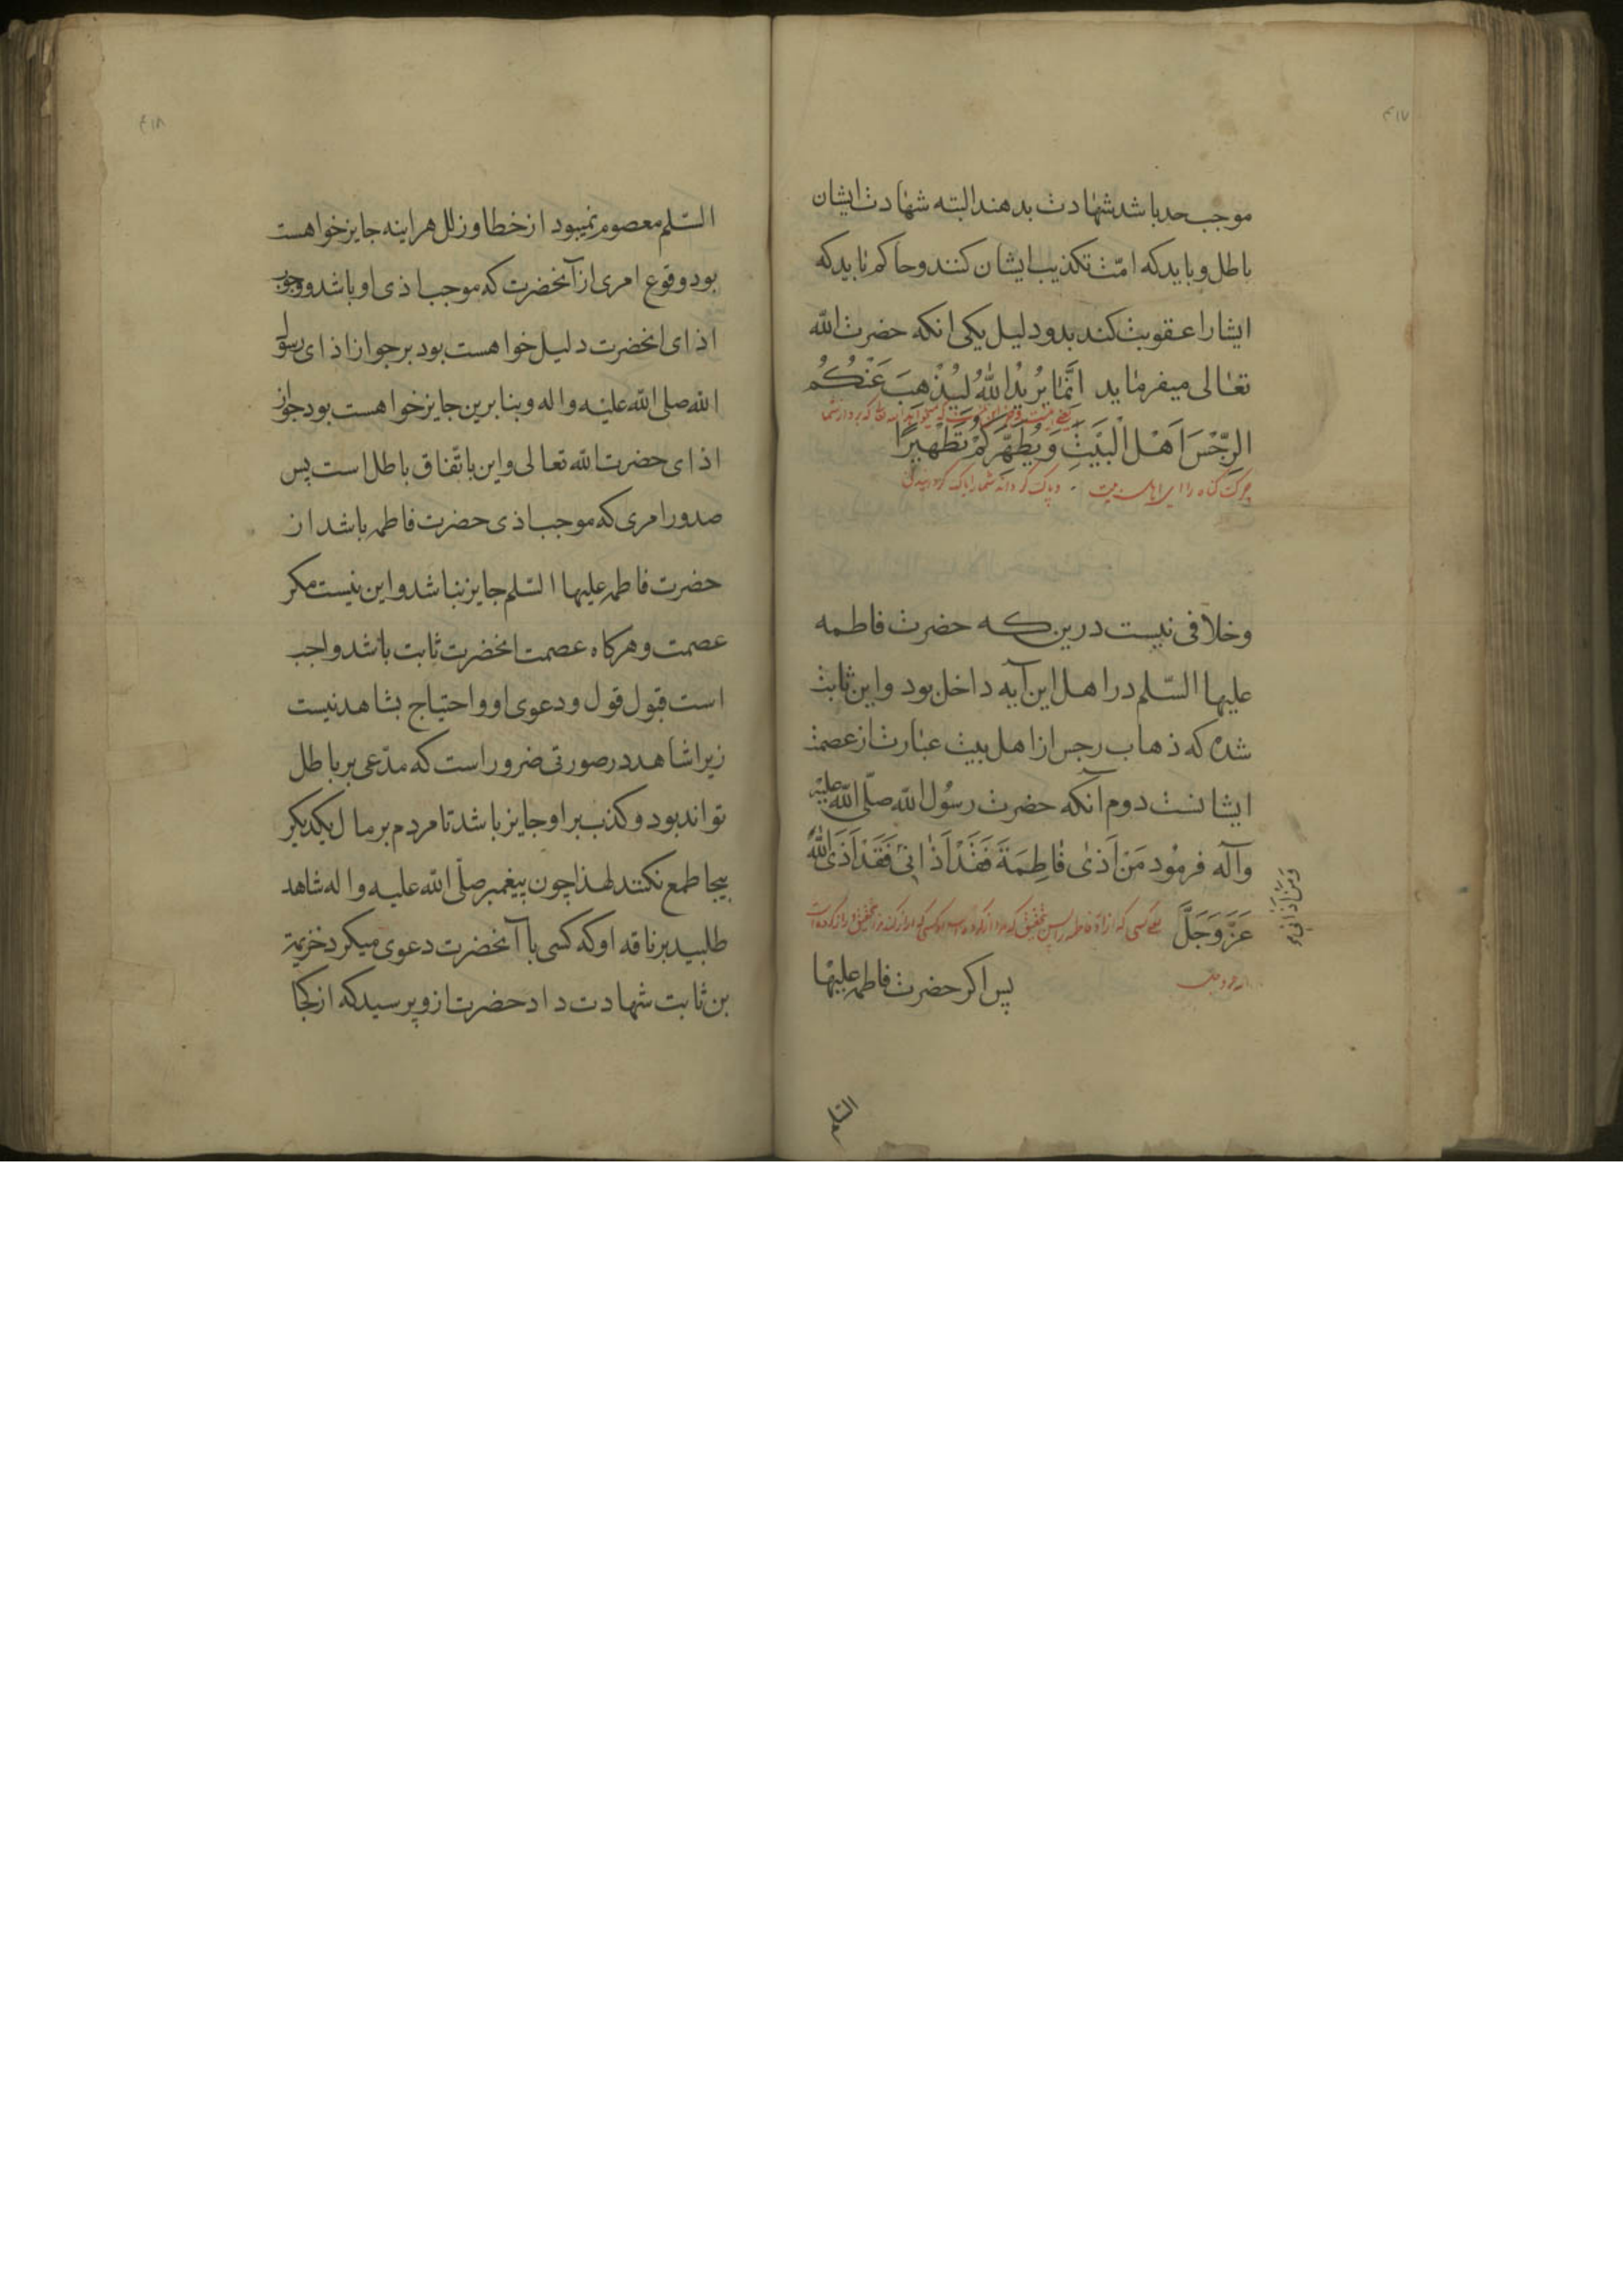 ۴۱۷
موجب حد باشد شهادت بدهند البته شهادت ایشان
باطل و باید که امّت تکذیب ایشان کنند و حاکم باید که
ایشارا عقوبت کند بدو دلیل یکی انکه حضرت الله
تعالی میفرماید اِنَّمَا یُرِیْدُ اللهُ لِیُذْهِبَ عَنْکُمُ
الرِّجْسَ اَهْلَ الْبَیْتِ وَیُطَهِّرَکُمْ تَطْهِیرًا
چرک کناه را ای اهل بیت و پاک کرداند شما را پاک کردانیدنی
وخلافی نیست درین که حضرت فاطمه
علیها السّلم در اهل این آیه داخل بود و این ثابت
شده که ذهاب رجس از اهل بیت عبارت از عصمت
ایشانست دوم آنکه حضرت رسُول الله صلّی الله علیه
وآله فرمُود مَنْ اَذٰی فَاطِمَةَ فَقَدْ اَذٰانِیْ فَقَدْ اَذَی اللهَ
وَمَنْ اَذٰانِی
عَزَّ وَجَلَّ
پس اکر حضرت فاطمه علیها
السّلم
۴۱۸
السّلم معصوم نمیبود از خطا و زلل هراینه جایز خواهست
بود وقوع امری از آنحضرت که موجب اذی او باشد و وجوب
اذای انحضرت دلیل خواهست بود بر جواز اذای رسول
الله صلی الله علیه واله وبنابرین جایز خواهست بود جواز
اذای حضرت الله تعالی و این باتّفاق باطل است پس
صدور امری که موجب اذی حضرت فاطمه باشد از
حضرت فاطمه علیها السّلم جایز نباشد و این نیست مکر
عصمت و هرکاه عصمت انحضرت ثابت باشد واجب
است قبول قول و دعوی او و احتیاج بشاهد نیست
زیرا شاهد در صورتی ضرور است که مدّعی بر باطل
تواند بود و کذب بر او جایز باشد تا مردم بر مال یکدیکر
بیجا طمع نکنند لهذا چون پیغمبر صلّی الله علیه و اله شاهد
طلبید بر ناقه او که کسی با آنحضرت دعوی میکرد خزیمة
بن ثابت شهادت داد حضرت ازو پرسید که از کجا